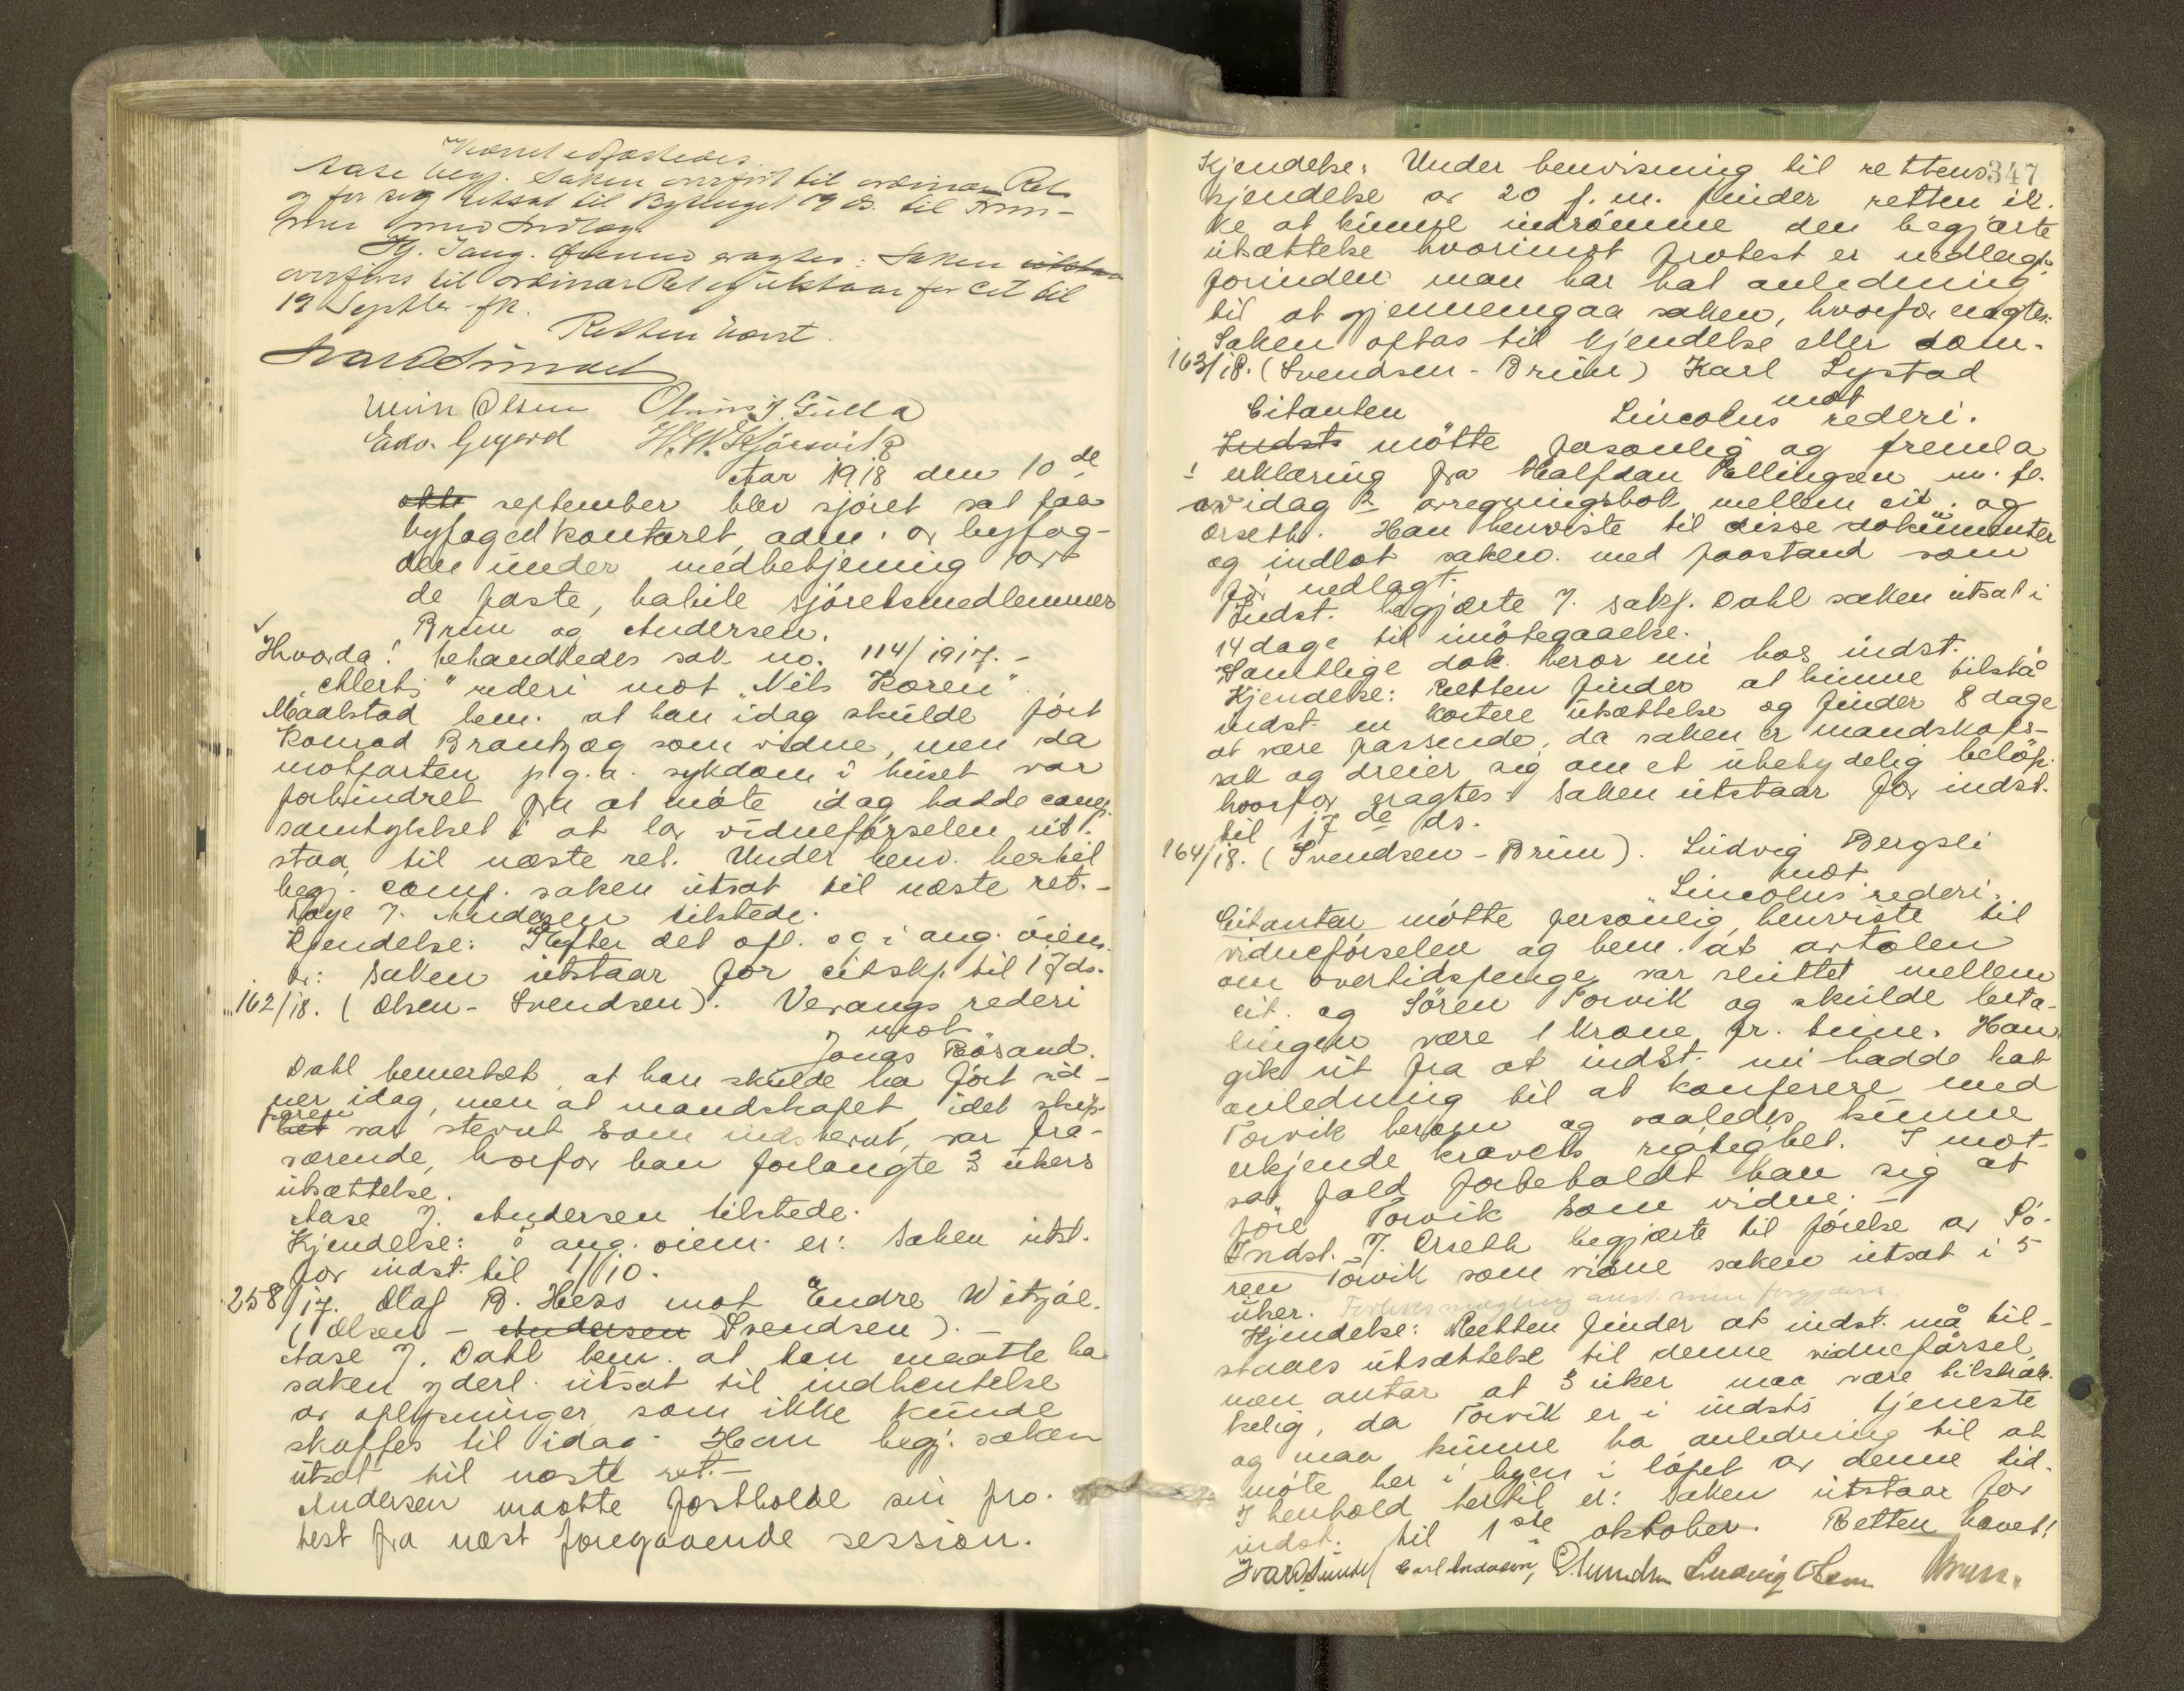 Aase begj. Saken overført til ordinær Ret
og for sig utsat til Bytinget 19 ds. til
med
Kj. I ang. eragtes: Saken
overføres til ordinær Ret og utstaar for Cit til
19 Septbr. fk.
Retten hævet.
Ivar Sundet
Olsen
H. W. Kjörsvik
Aar 1918 den 10de
otte september blev sjöret sat paa
byfogedkontoret, adm. av byfog-
den under medbetjening av
de faste, habile sjöretsmedlemmer
Brun og Andersen.
Hvorda! behandledes sak no. 114/1917. -
"Alerts" rederi mot "Nils Koren".
Maalstad bem. at han idag skulde fört
Konrad Brantzæg som vidne, men da
motparten p.g.a. sykdom i huset var
forhindret fra at möte idag hadde comp.
samtykket i at la vidneförselen ut-
staa til næste ret. Under henv. hertil
begj. comp. saken utsat til næste ret. -
Aase f. Andersen tilstede.
Kjendelse: Efter det opl. og i ang. öiem.
er: Saken utstaar for citskp. til 17 ds.
162/18. (Olsen - Svendsen). Verangs rederi
mot
Jonas Rösand.
Dahl bemerket, at han skulde ha fört vid-
ner idag, men at mandskapet, idet skip-
peren
het var stevnt som indstevnt, var fra-
værende, hvorfor han forlangte 3 ukers
utsættelse.
Aase f. Andersen tilstede.
Kjendelse: I ang. öiem. er: Saken utst.
for indst. til 1/10.
258/17. Olaf B. Hess mot Endre Witsöe.
(Olsen - Andersen Svendsen). -
Aase f. Dahl bem. at han maatte ha
saken yderl. utsat til indhentelse
av oplysninger som ikke kunde
skaffes til idag. Han begj. saken
utsat til næste ret. -
Andersen maatte fastholde sin pro-
test fra næst foregaaende session.
347
Kjendelse: Under henvisning til rettens
kjendelse av 20 f. m. finder retten ik-
ke at kunne indrömme den begjærte
utsættelse hvorimot protest er nedlagt
forinden man har hat anledning
til at gjennemgaa saken, hvorfor eragtes:
Saken optas til kjendelse eller dom.
163/18. (Svendsen - Brun) Karl Systad
mot
Citanten Lincolns rederi.
Indsts mötte personlig og fremla
1 erklæring fra Halfdan Ellingsen m. fl.
av idag 2 avregningsbok mellem cit. og
Orseth. Han henviste til disse dokumenter
og indlot saken med paastand som
för nedlagt.
Indst. begjærte f. sakf. Dahl saken utsat i
14 dage til imötegaaelse.
Samtlige dok. beror nu hos indst.
Kjendelse: Retten finder at kunne tilstå
indst. en kortere utsættelse og finder 8 dage
at være passende, da saken er mandskaps-
sak og dreier sig om et ubetydelig belöp.
hvorfor eragtes: Saken utstaar for indst.
til 17de ds.
164/18. (Svendsen - Brun). Ludvig Bergsli
mot
"Lincolns" rederi.
Citanten mötte personlig, henviste til
vidneförselen og bem. at avtalen
om overtidspenge var sluttet mellem
cit. og Sören Torvik og skulde beta-
lingen være 1 krone pr. time. Han
gik ut fra at indst. nu hadde hat
anledning til at konferere med
Torvik herom og saaledes kunne
erkjende kravets rigtighet. I mot-
sat fald forbeholdt han sig at
före Torvik som vidne. -
Indst. f. Orseth begjærte til förelse av Sö-
ren Torvik som vidne saken utsat i 5
uker. Forliksmægling anst. men forgjæves.
Kjendelse: Retten finder at indst. må til-
staaes utsættelse til denne vidneförsel,
men antar at 3 uker maa være tilstræk-
kelig, da Torvik er i indsts tjeneste
og maa kunne ha anledning til at
möte her i byen i löpet av denne tid.
I henhold hertil er: Saken utstaar for
indst. til 1ste oktober. Retten hævet!
Ivar Sundet Carl Andersen, Ludvig Olsen Brun.